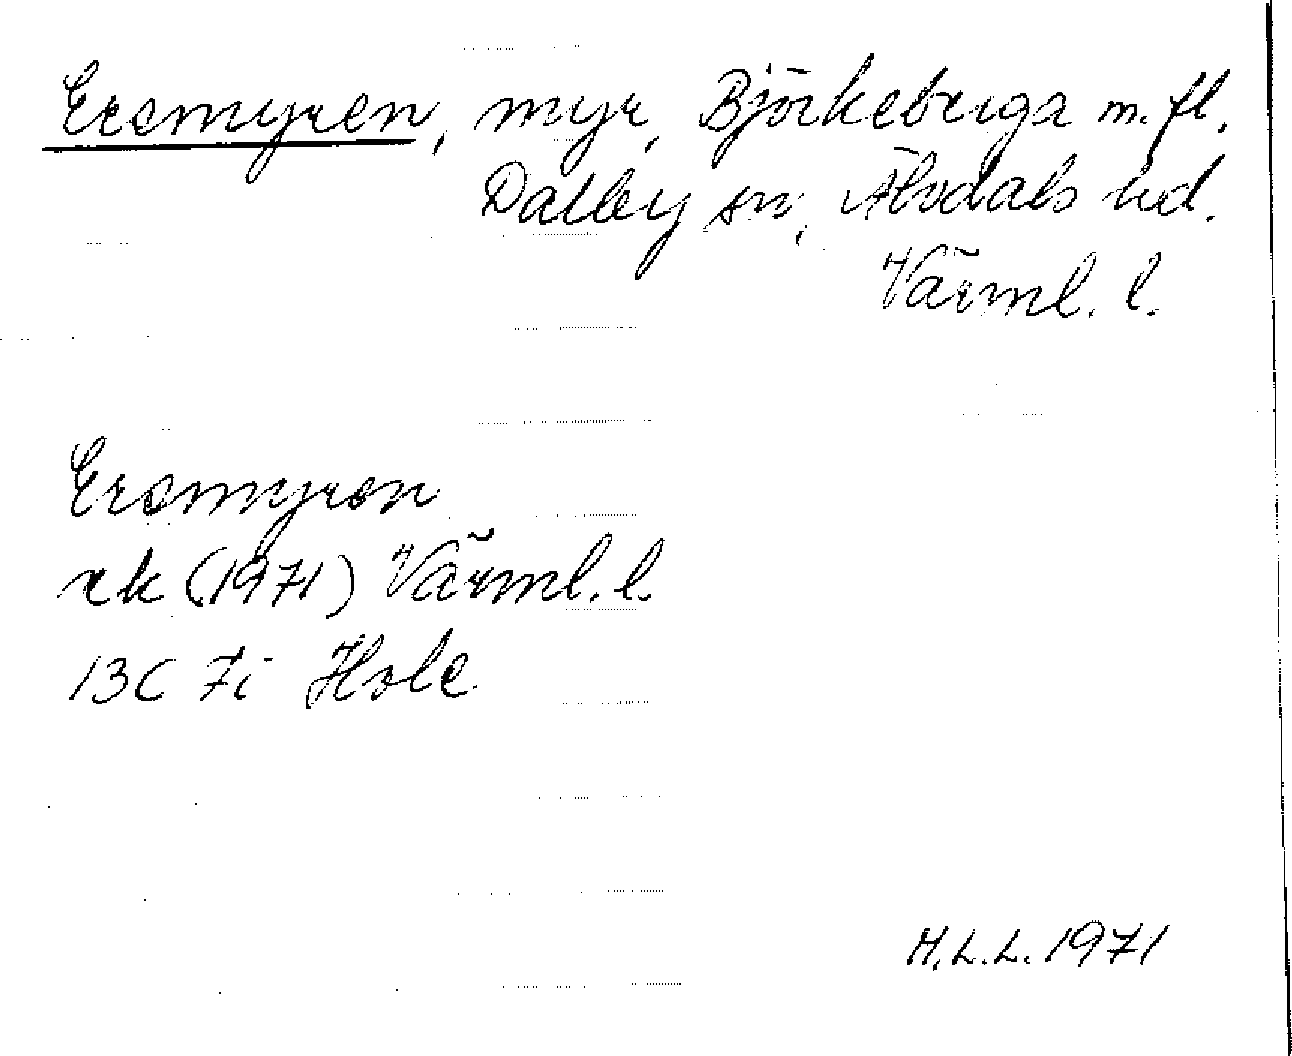 Eremyren, myr, Björkeberga m. fl.
Dalby sn, Älvdals hd.
Värml. l.
Eremyren
rk (1971) Värml. l.
13C 7i Hole
M.L.L. 1971